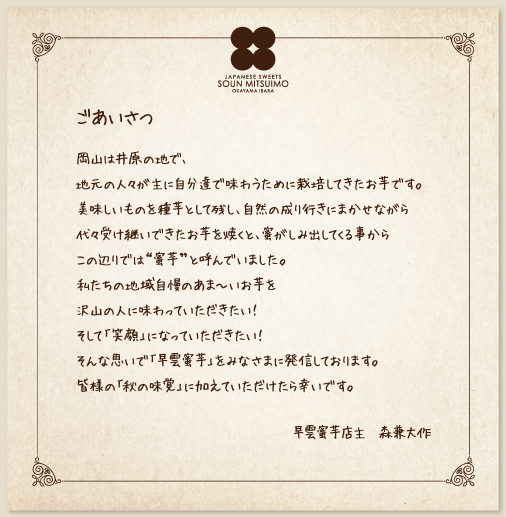 JAPANESE SWEETS
SOUN MITSUIMO
OKAYAMA IBARA
ごあいさつ
岡山は井原の地で、
地元の人々が主に自分達で味わうために栽培してきたお芋です。
美味しいものを種芋として残し、自然の成り行きにまかせながら
代々受け継いできたお芋を焼くと、蜜がしみ出してくる事から
この辺りでは“蜜芋”と呼んでいました。
私たちの地域自慢のあま〜いお芋を
沢山の人に味わっていただきたい!
そして「笑顔」になっていただきたい!
そんな思いで「早雲蜜芋」をみなさまに発信しております。
皆様の「秋の味覚」に加えていただけたら幸いです。
早雲蜜芋店主 森兼大作